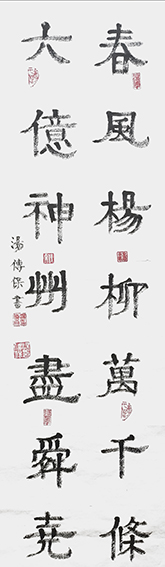 春風楊柳萬千條
六億神州盡舜堯
湯傳傑書